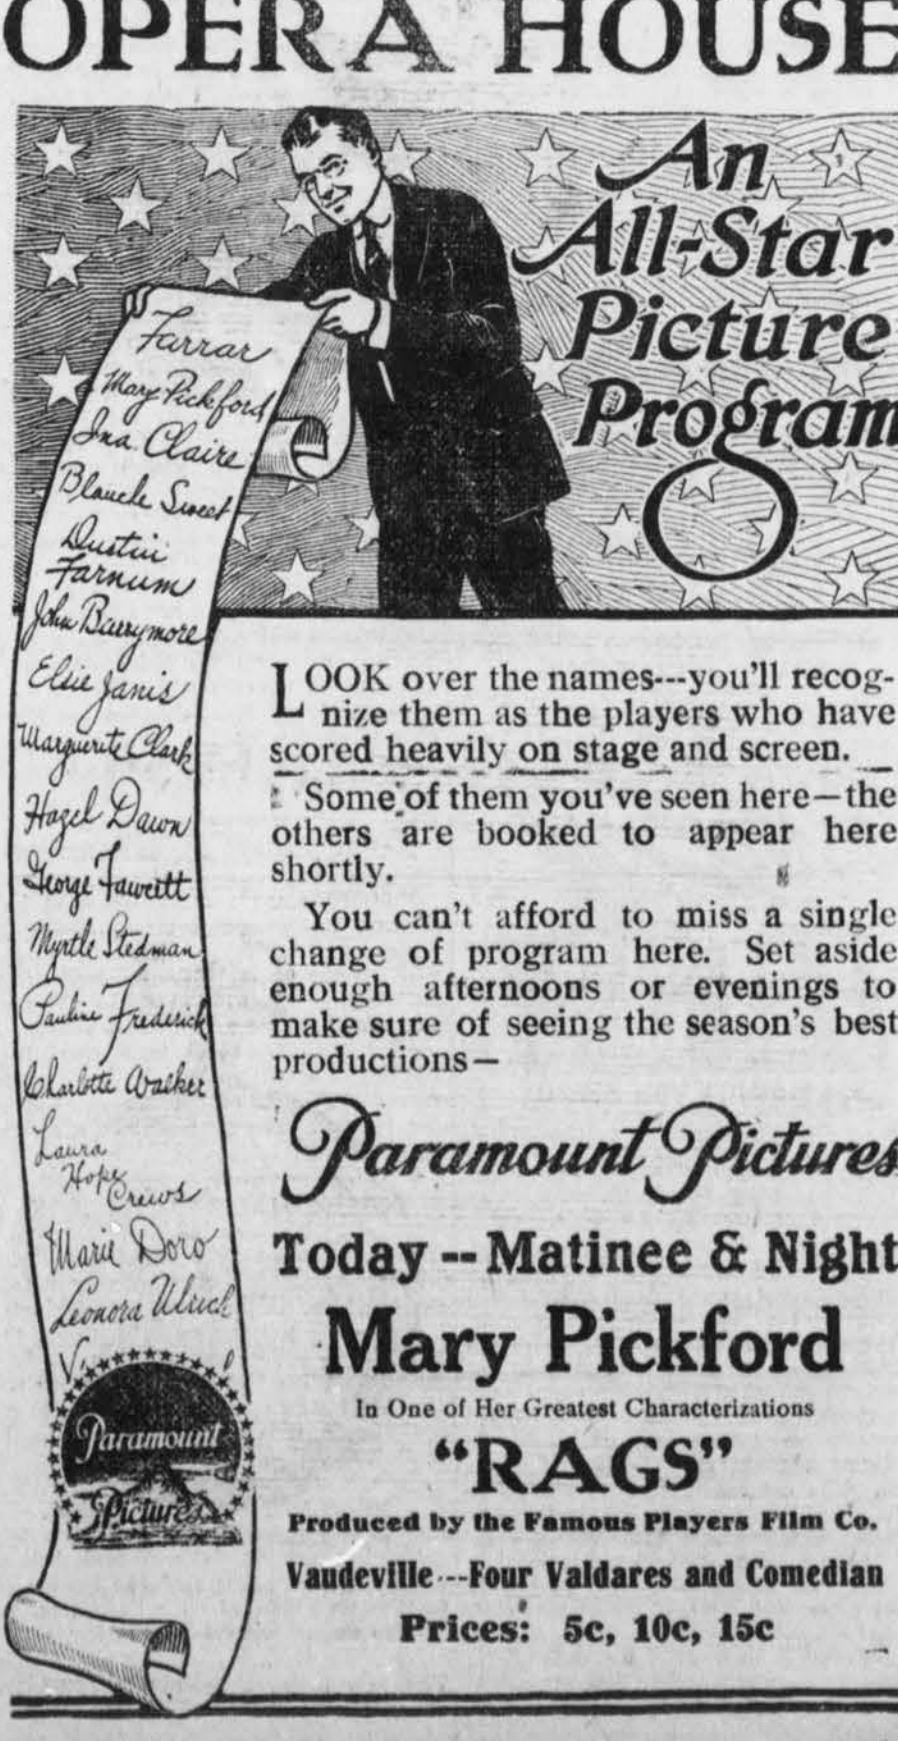 OPERA HOUSE
An
All-Star
Picture
Program
Farrar
Mary Pickford
Ina Claire
Blanche Sweet
Dustin
Farnum
John Barrymore
Elsie Janis
Marguerite Clark
Hazel Dawn
George Fawcett
Myrtle Stedman
Pauline Frederick
Charlotte Walker
Laura
Hope
Crews
Marie Doro
Leonora Ulrich
Paramount
Pictures
LOOK over the names---you'll recog-
nize them as the players who have
scored heavily on stage and screen.
Some of them you've seen here—the
others are booked to appear here
shortly.
You can't afford to miss a single
change of program here. Set aside
enough afternoons or evenings to
make sure of seeing the season's best
productions—
Paramount Pictures
Today -- Matinee & Night
Mary Pickford
In One of Her Greatest Characterizations
“RAGS”
Produced by the Famous Players Film Co.
Vaudeville---Four Valdares and Comedian
Prices: 5c, 10c, 15c